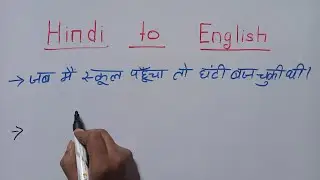 Hindi to English
→ जब मैं स्कूल पहुँचा तो घंटी बज चुकी थी।
→